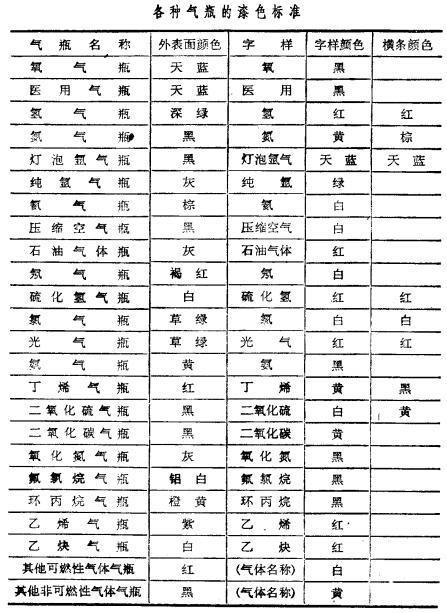 各种气瓶的漆色标准
气瓶名称 外表面颜色 字样 字样颜色 横条颜色
氧气瓶 天蓝 氧 黑
医用气瓶 天蓝 医用 黑
氢气瓶 深绿 氢 红 红
氮气瓶 黑 氮 黄 棕
灯泡氩气瓶 黑 灯泡氩气 天蓝 天蓝
纯氩气瓶 灰 纯氩 绿
气瓶 棕 白
压缩空气瓶 黑 压缩空气 白
石油气体瓶 灰 石油气体 红
气瓶 褐红 白
硫化氢气瓶 白 硫化氢 红 红
氯气瓶 草绿 氯 白 白
光气瓶 草绿 光气 红 红
氨气瓶 黄 氨 黑
丁烯气瓶 红 丁烯 黄 黑
二氧化硫气瓶 黑 二氧化硫 白 黄
二氧化碳气瓶 黑 二氧化碳 黄
氧化氮气瓶 灰 氧化氮 黑
氟氯烷气瓶 铝白 氟氯烷 黑
环丙烷气瓶 橙黄 环丙烷 黑
乙烯气瓶 紫 乙烯 红
乙炔气瓶 白 乙炔 红
其他可燃性气体气瓶 红 (气体名称) 白
其他非可燃性气体气瓶 黑 (气体名称) 黄